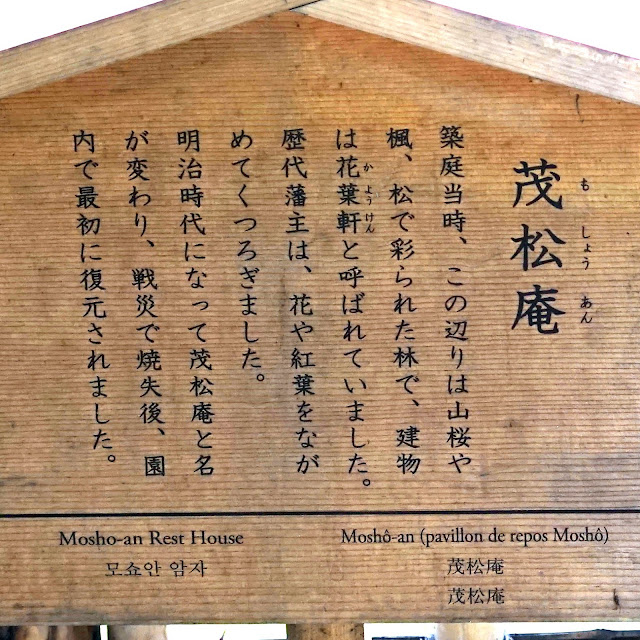 茂松庵
もしょうあん
築庭当時、この辺りは山桜や
楓、松で彩られた林で、建物
は花葉軒と呼ばれていました。
かようけん
歴代藩主は、花や紅葉をなが
めてくつろぎました。
明治時代になって茂松庵と名
が変わり、戦災で焼失後、園
内で最初に復元されました。
Mosho-an Rest House
모쇼안 암자
Moshô-an (pavillon de repos Moshô)
茂松庵
茂松庵